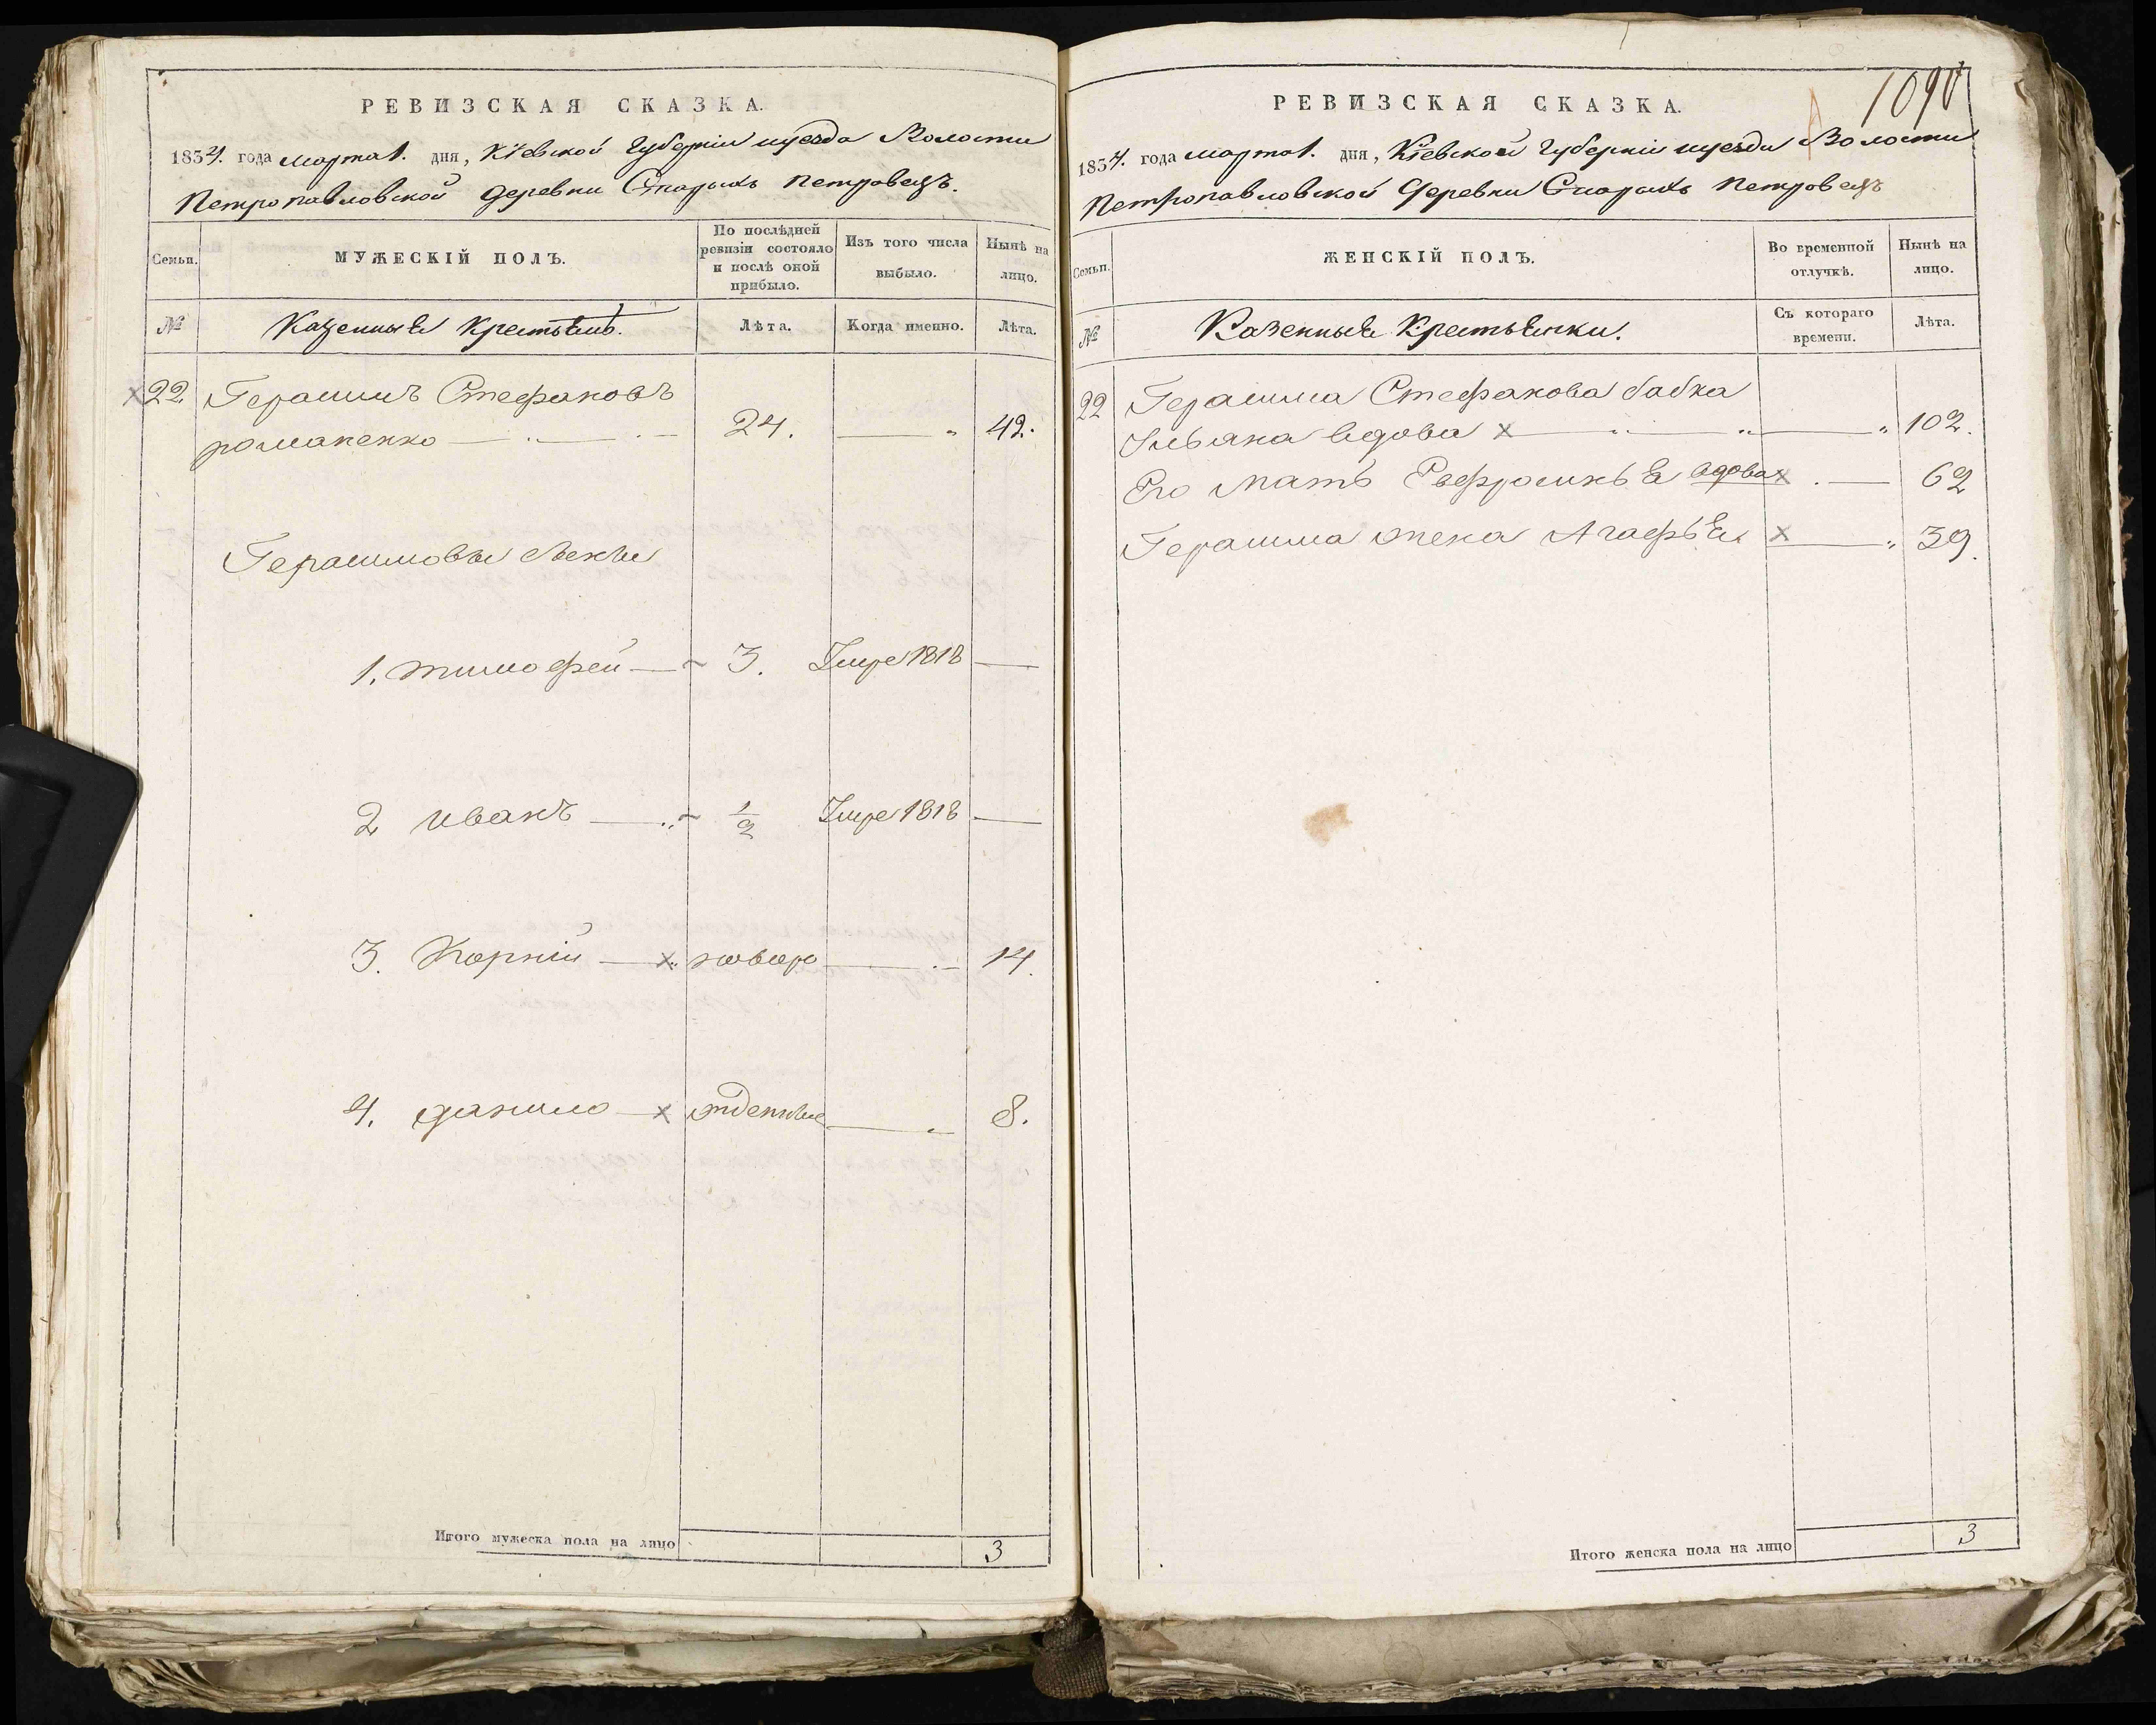 РЕВИЗСКАЯ СКАЗКА.
1834. года марта 1. дня, Кіевской Губерніи и уезда Волости
Петропавловской деревни Старыхъ Петровецъ.
Семьи.
МУЖЕСКІЙ ПОЛЪ.
По послѣдней ревизіи состояло и послѣ оной прибыло.
Изъ того числа выбыло.
Нынѣ на лицо.
№
Казенные Крестьяне.
Лѣта.
Когда именно.
Лѣта.
22 Герасимъ Стефановъ
романенко 24. 42.
Герасимовы сыны
1. тимофей 3. Умре 1818
2 иванъ 1/2 Умре 1818
3. Корній новоро 14.
4. данило жденные 8.
Итого мужеска пола на лицо 3
1090
РЕВИЗСКАЯ СКАЗКА.
1834. года марта 1. дня, Кіевской Губерніи и уезда Волости
Петропавловской деревни Старыхъ Петровецъ
Семьи.
ЖЕНСКІЙ ПОЛЪ.
Во временной отлучкѣ.
Нынѣ на лицо.
№
Казенные Крестьянки.
Съ котораго времени.
Лѣта.
22 Герасима Стефанова бабка
Ульяна вдова 102.
Его мать Евфросинья вдова 62
Герасима жена Агафья 39.
Итого женска пола на лицо 3